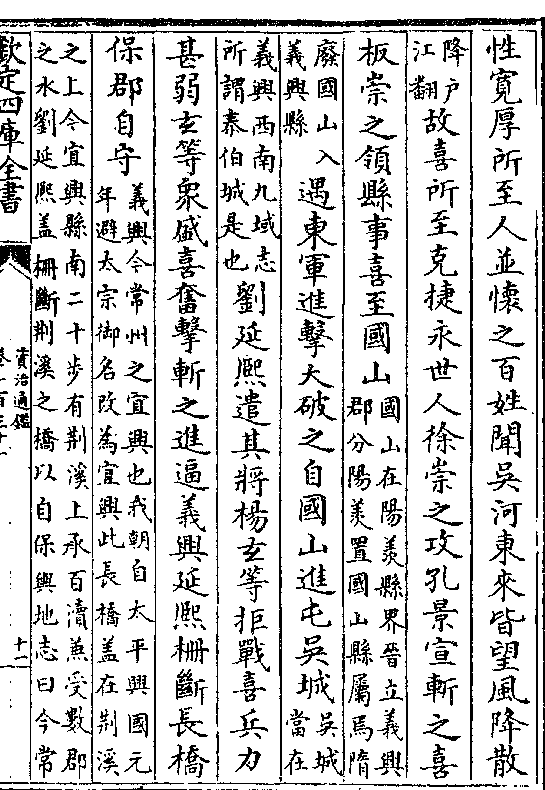 性寛厚所至人並懷之百姓聞吳河東來皆望風降散
降户
江翻
故喜所至克捷永世人徐崇之攻孔景宣斬之喜
板崇之領縣事喜至國山
國山在陽羡縣界晉立義興
郡分陽羡置國山縣屬焉隋
廢國山入
義興縣
遇東軍進擊大破之自國山進屯吳城
吳城當在
義興西南九域志
所謂泰伯城是也
劉延熈遣其將楊玄等拒戰喜兵力
甚弱玄等衆盛喜奮擊斬之進逼義興延熈柵斷長橋
保郡自守
義興今常州之宜興也我朝自太平興國元
年避太宗御名改為宜興此長橋蓋在荆溪
之上今宜興縣南二十步有荆溪上承百瀆兼受數郡
之水劉延熈盖柵斷荆溪之橋以自保輿地志曰今常
欽定四庫全書
資治通鑑
卷一百三十一
十一